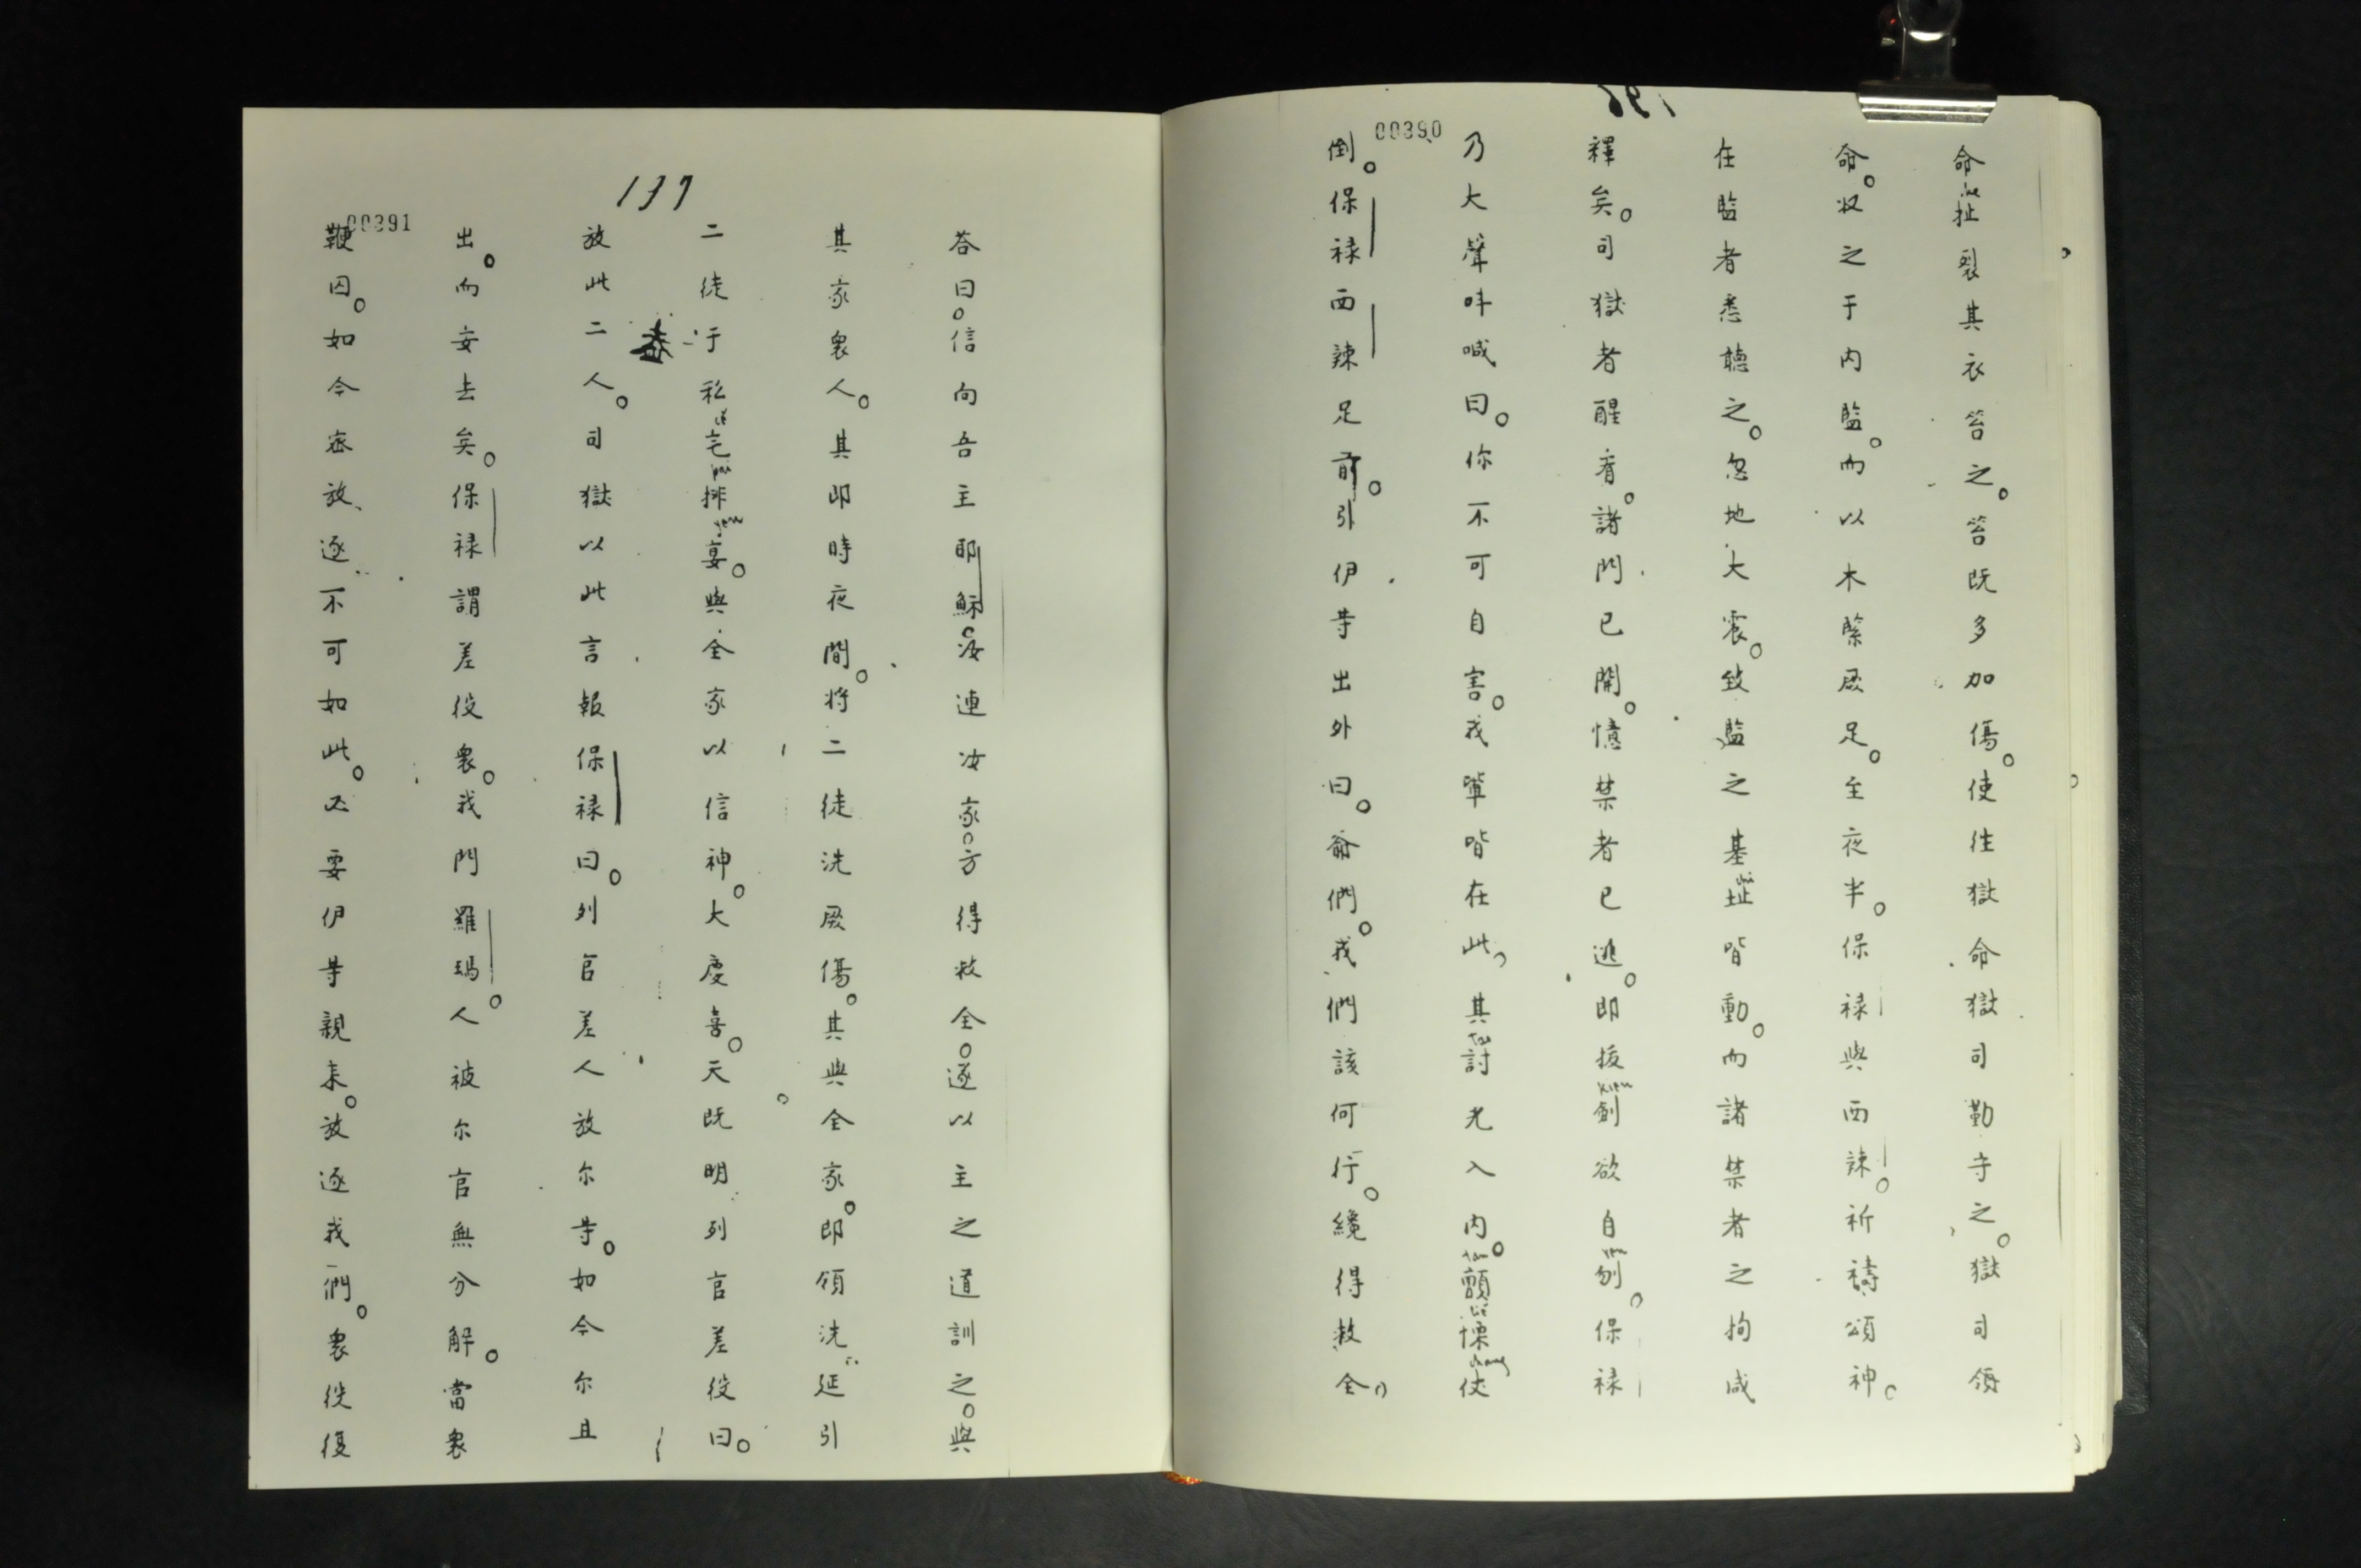 00390
命扯裂其衣笞之。笞既多加傷。使往獄命獄司勤守之。獄司領
命。収之于內監。而以木緊厥足。至夜半。保祿與西辣。祈禱頌神。
在監者悉聽之。忽地大震。致監之基址皆動。而諸禁者之拘咸
釋矣。司獄者醒看。諸門已開。憶禁者已逃。即拔劍欲自刎。保祿
乃大聲呌喊曰。你不可自害。我軰皆在此。其討光入內。顫慄仗
倒。保祿西辣足前。引伊等出外曰。爺們。我們該何行。纔得救全。
137
00391
荅曰。信向吾主耶穌。汝連汝家。方得救全。遂以主之道訓之。與
其家衆人。其即時夜間。將二徒洗厥傷。其與全家。即領洗延引
二徒于私宅排宴。與全家以信神。大慶喜。天既明列官差役曰。
放此二人。司獄以此言報保祿曰。列官差人放尔等。如今尔且
出。而安去矣。保祿謂差役衆。我門羅瑪人。被尔官無分解。當衆
鞭囚。如今宻放逐不可如此。必要伊等親来。放逐我們。衆役復